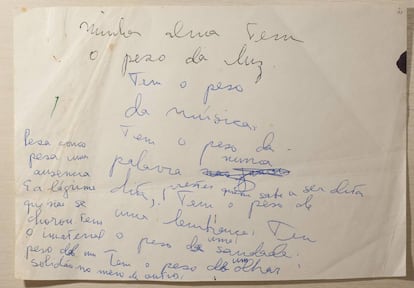 minha alma tem
o peso da luz.
Tem o peso
da música.
Tem o peso da
palavra nunca
dita, prestes quem sabe a ser dita
Tem o peso de
uma lembrança. Tem
o peso de uma saudade.
Tem o peso de um olhar.
Pesa como
pesa uma
ausência
E a lágrima
que não se
chorou. Tem
o imaterial
peso de um
solidão no meio de outros.